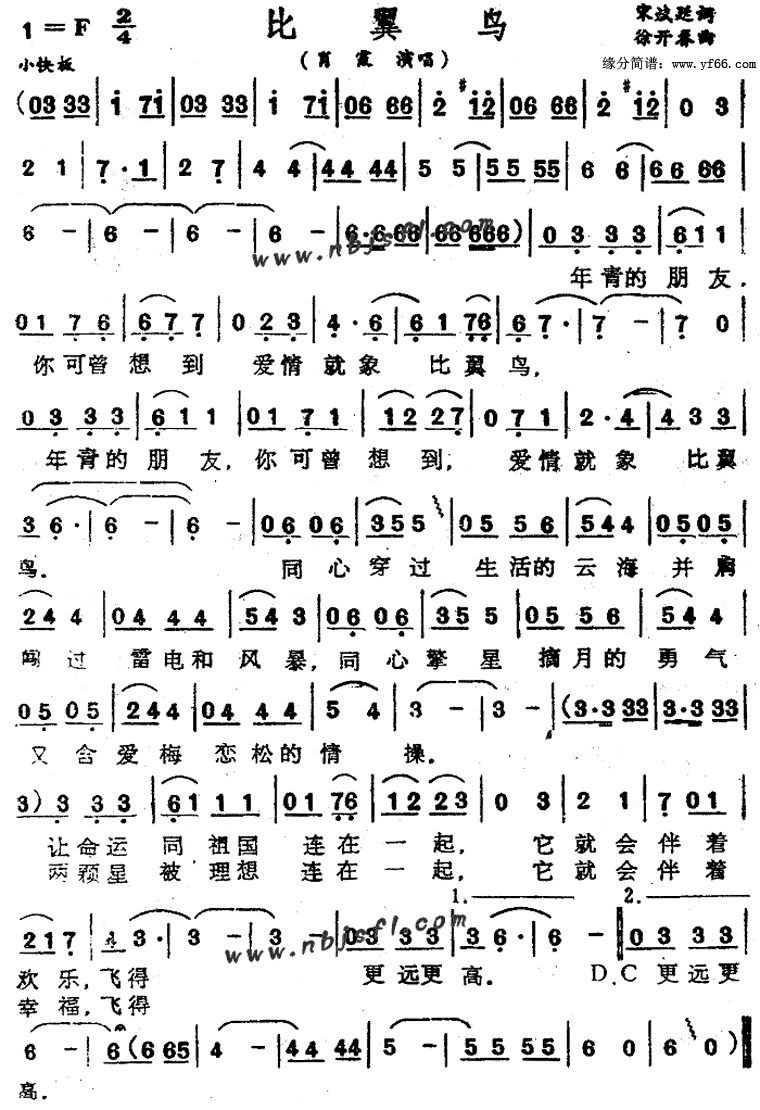 1=F 2/4 比翼鸟
徐开春曲
小快板 (肖霞 演唱) 缘分简谱：www.yf66.com
(03 33 | i 7i | 03 33 | i 7i | 06 66 | 2 #i2 | 06 66 | 2 #i2 | 0 3 |
2 1 | 7·1 | 2 7 | 4 4 | 44 44 | 5 5 | 55 55 | 6 6 | 66 66 |
6 - | 6 - | 6 - | 6 - | 6·6 66 | 66 666) | 0 3 3 3 | 6 1 1 |
www.nbjsfl.com
年青的朋友，
01 7 6 | 6 7 7 | 0 2 3 | 4· 6 | 6 1 76 | 6 7· | 7 - | 7 0
你可曾想到 爱情就象 比翼鸟，
0 3 3 3 | 6 1 1 | 01 71 | 12 27 | 0 7 1 | 2· 4 | 4 3 3 |
年青的朋友，你可曾想到，爱情就象 比翼
3 6· | 6 - | 6 - | 06 06 | 35 5 | 05 56 | 54 4 | 05 05 |
鸟。 同心穿过 生活的云海并肩
24 4 | 04 44 | 54 3 | 06 06 | 35 5 | 05 56 | 54 4 |
闯过 雷电和风暴，同心擎星摘月的勇气
05 05 | 24 4 | 04 44 | 5 4 | 3 - | 3 - | (3·3 33 | 3·3 33 |
又含爱梅恋松的情操。
3) 3 3 3 | 6 1 1 1 | 01 76 | 12 23 | 0 3 | 2 1 | 7 01 |
让命运同祖国 连在一起，它就会伴着
两颗星被理想 连在一起，它就会伴着
21 7 | 3· | 3 - | 3 - | 03 33 | 1. 3 6· | 6 - | 2. 03 33 |
www.nbjsfl.com
欢乐，飞得 更远更高。 D.C 更远更
幸福，飞得
6 - | 6 (6 65 | 4 - | 44 44 | 5 - | 55 55 | 6 0 | 6 0) |
高。